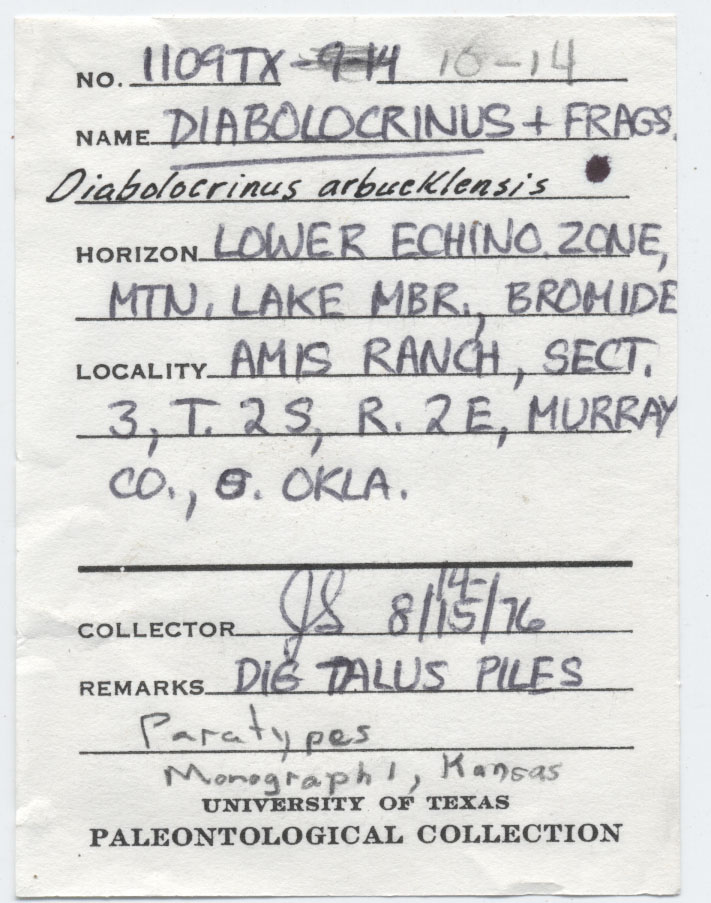 NO. 1109TX-9-14 16-14
NAME DIABOLOCRINUS + FRAGS.
Diabolocrinus arbucklensis
HORIZON LOWER ECHINO. ZONE,
MTN. LAKE MBR., BROMIDE
LOCALITY AMIS RANCH, SECT.
3, T. 2 S, R. 2 E, MURRAY
CO., S. OKLA.
COLLECTOR JS 8/14-15/76
REMARKS DIG TALUS PILES
Paratypes
Monograph 1, Kansas
UNIVERSITY OF TEXAS
PALEONTOLOGICAL COLLECTION